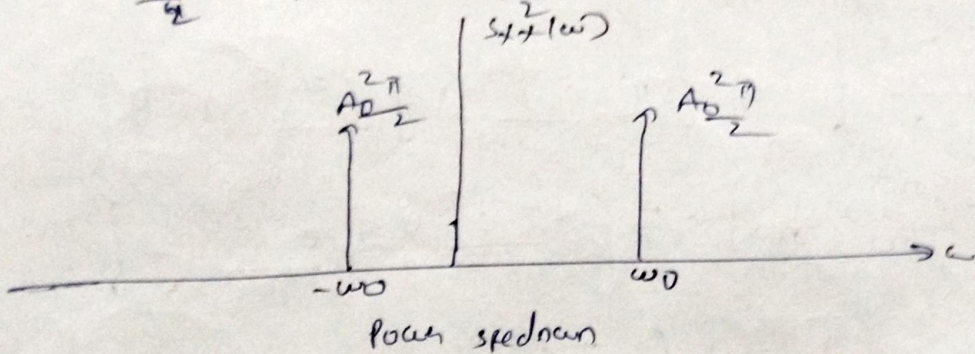 Sxx²(ω)
A0²π/2
A0²π/2
-ω0
ω0
ω
Power spednan